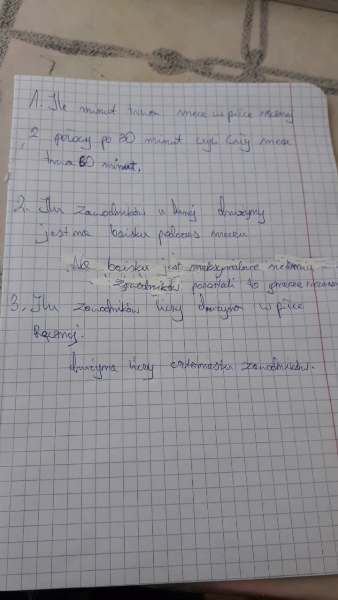 1. Ile minut trwa mecz w piłce ręcznej
2 połowy po 30 minut czyli cały mecz
trwa 60 minut.
2. Ilu zawodników w danej drużyny
jest na boisku podczas meczu
Na boisku jest maksymalnie
zawodników pozostali to gracze
3. Ilu zawodników liczy drużyna w piłce
Ręcznej.
drużyna liczy czternastu zawodników.